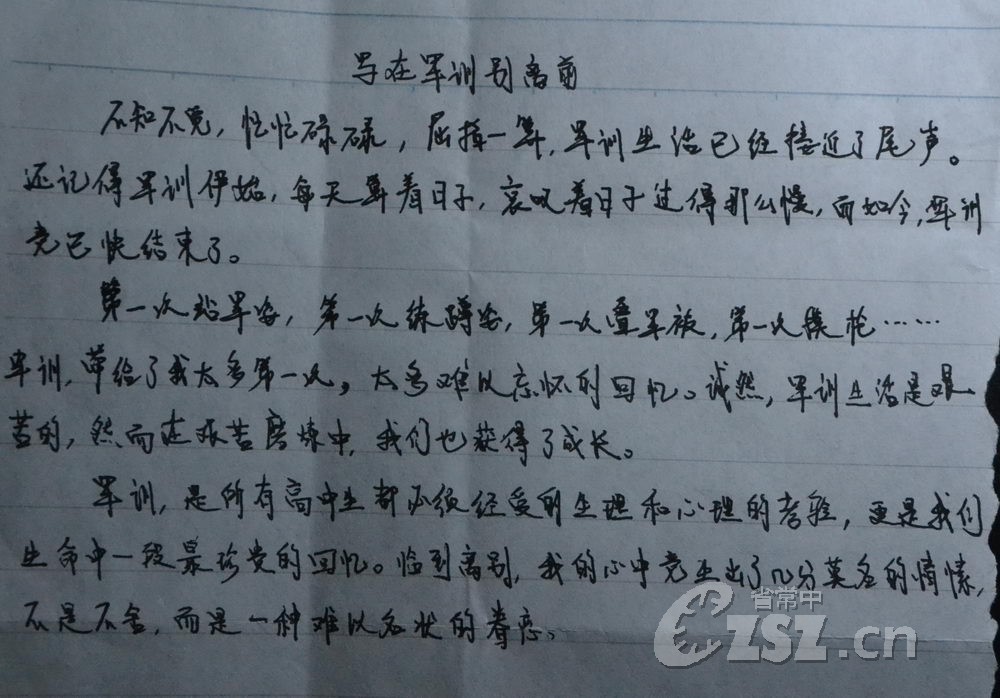 写在军训别离前
不知不觉，忙忙碌碌，屈指一算，军训生活已经接近了尾声。
还记得军训伊始，每天算着日子，哀叹着日子过得那么慢，而如今，军训
竟已快结束了。
第一次站军姿，第一次练蹲姿，第一次叠军被，第一次摸枪……
军训，带给了我太多第一次，太多难以忘怀的回忆。诚然，军训生活是艰
苦的，然而在艰苦磨炼中，我们也获得了成长。
军训，是所有高中生都必须经受的生理和心理的考验，更是我们
生命中一段最珍贵的回忆。临到离别，我的心中竟生出了几分莫名的情愫，
不是不舍，而是一种难以名状的眷恋。
省常中
CZSZ.cn